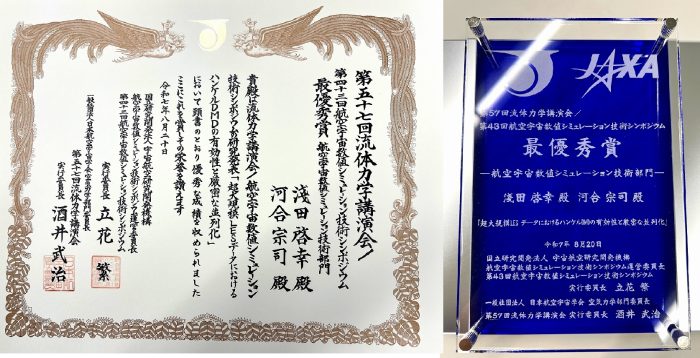 第五十七回流体力学講演会/
第四十三回航空宇宙数値シミュレーション技術シンポジウム
最優秀賞 航空宇宙数値シミュレーション技術部門
浅田 啓幸 殿
河合 宗司 殿
貴殿は流体力学講演会/航空宇宙数値シミュレーション
技術シンポジウム研究発表「超大規模LESデータにおける
ハンケルDMDの有効性と厳密な並列化」
において頭書のとおり優秀な成績を収められました
ここにこれを賞しその栄誉を讃えます
令和七年八月二十日
国立研究開発法人宇宙航空研究開発機構
航空宇宙数値シミュレーション技術シンポジウム運営委員長
第四十三回航空宇宙数値シミュレーション技術シンポジウム
実行委員長 立花 繁
一般社団法人日本航空宇宙学会空気力学部門委員長
第五十七回流体力学講演会
実行委員長 酒井 武治
JAXA
第57回流体力学講演会/
第43回航空宇宙数値シミュレーション技術シンポジウム
最優秀賞
―航空宇宙数値シミュレーション技術部門―
浅田 啓幸 殿 河合 宗司 殿
「超大規模LESデータにおけるハンケルDMDの有効性と厳密な並列化」
令和7年 8月20日
国立研究開発法人 宇宙航空研究開発機構
航空宇宙数値シミュレーション技術シンポジウム運営委員長
第43回航空宇宙数値シミュレーション技術シンポジウム
実行委員長 立花 繁
一般社団法人 日本航空宇宙学会 空気力学部門委員長
第57回流体力学講演会 実行委員長 酒井 武治